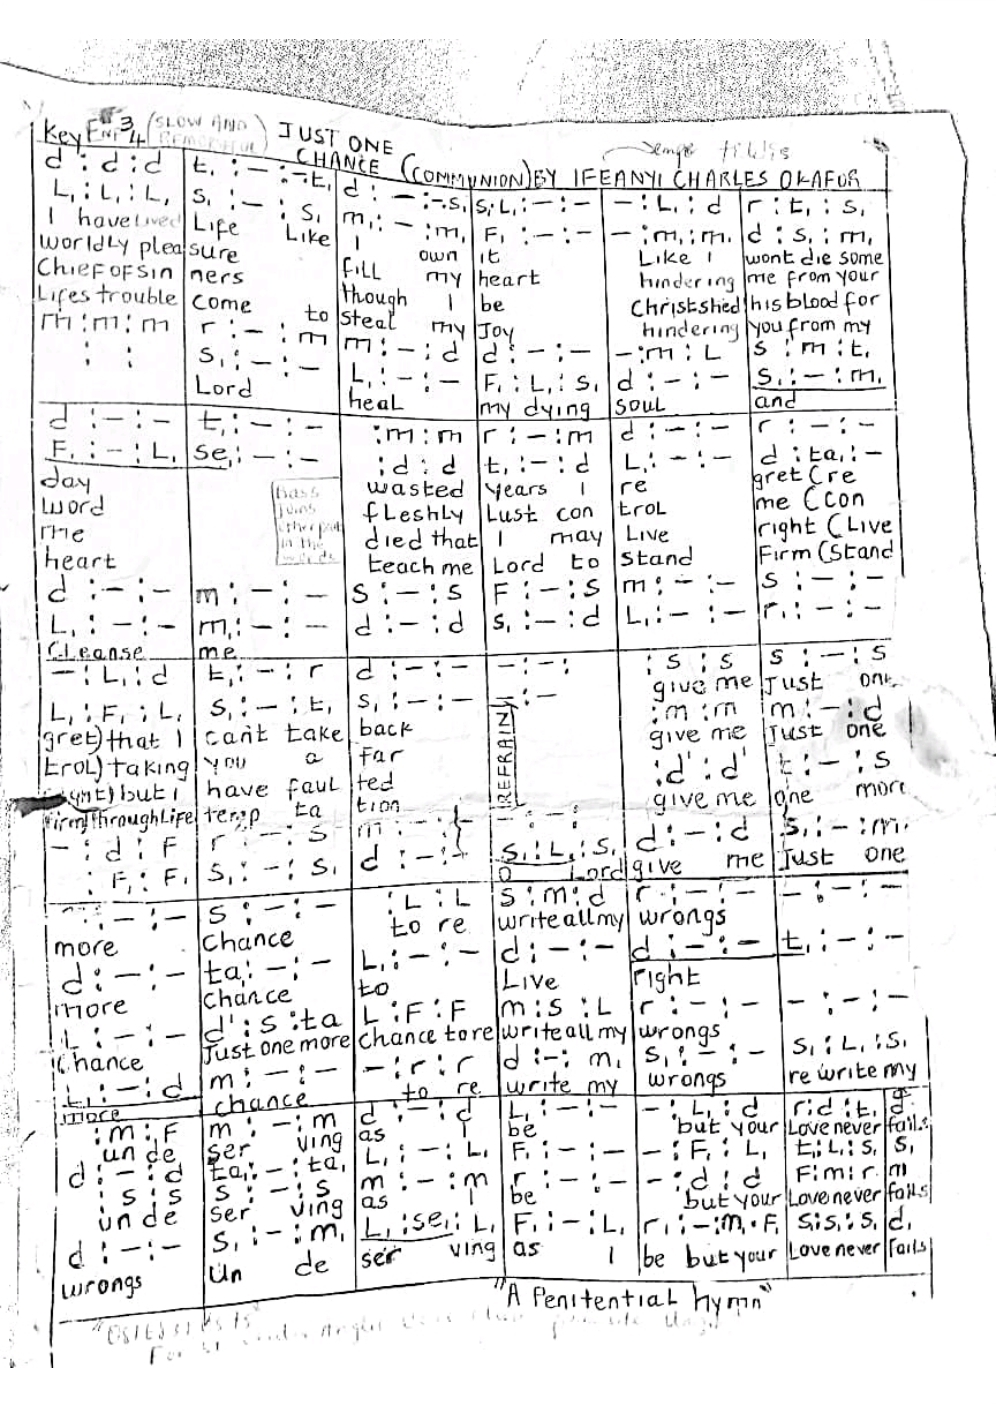 Key 3/4 (SLOW AND JUST ONE
CHANCE (COMMUNION) BY IFEANYI CHARLES OKAFOR
d : d : d t, : — : — t, d : — : — s, s, : L, : — : — — : L, : d r : t, : s,
L, : L, : L, s, : — : s, m, : — : m, F, : — : — — : m, : m, d : s, : m,
I have lived Life Like I own it Like I wont die some
worldly pleasure fill my heart hindering me from your
Chief of sinners though I be Christ shed his blood for
Lifes trouble come to steal my Joy hindering you from my
m : m : m r : — : m m : — : d d : — : — — : m : L s : m : t,
: : s, : — : — L, : — : — F, : L, : s, d : — : — s, : — : m,
Lord heal my dying soul and
d : — : — t, : — : — : m : m r : — : m d : — : — r : — : —
F, : — : L, se, : — : — : d : d t, : — : d L, : — : — d : ta, : —
day wasted years I re gret (re
word fleshly Lust con trol me (con
me died that I may Live right (Live
heart teach me Lord to stand Firm (Stand
Bass joins
in the
d : — : — m : — : — s : — : s F : — : s m : — : — s : — : —
L, : — : — m, : — : — d : — : d s, : — : d L, : — : — r, : — : —
Cleanse me
— : L, : d t, : — : r d : — : — — : — : : s : s s : — : s
give me Just one
L, : F, : L, s, : — : t, s, : — : — — : — : m : m m : — : d
gret) that I cant take back give me Just one
trol) taking you a far : d' : d' t : — : s
but I have faul ted give me one more
Firm) Through Life temp ta tion
(REFRAIN)
— : d : F r : — : s m : — : — s, : L, : s, d : — : d s, : — : m,
: F, : F, s, : — : s, d : — : — O Lord give me Just one
— : — : — s : — : — : L : L s : m : d r : — : — — : — : —
more chance to re write all my wrongs
d : — : — ta, : — : — L, : — : — d : — : — d : — : — t, : — : —
more chance to Live right
L : — : — d' : s : ta L : F : F m : s : L r : — : — — : — : —
Chance Just one more chance to re write all my wrongs
t, : — : d m : — : — — : r : r d : — : m, s, : — : — s, : L, : s,
more chance to re write my wrongs re write my
: m : F m : — : m d : — : d L, : — : — — : L, : d r : d : t, d
un de ser ving as I be but your Love never fails
d : — : d ta, : — : ta, L, : — : L, F, : — : — — : F, : L, t, : L, : s, s,
: s : s s : — : s m : — : m r : — : — — : d : d F : m : r m
un de ser ving as I be but your Love never fails
d : — : — s, : — : m, L, : se, : L, F, : — : L, r, : — : m, . F, s, : s, : s, d,
wrongs un de ser ving as I be but your Love never fails
"A Penitential hymn"